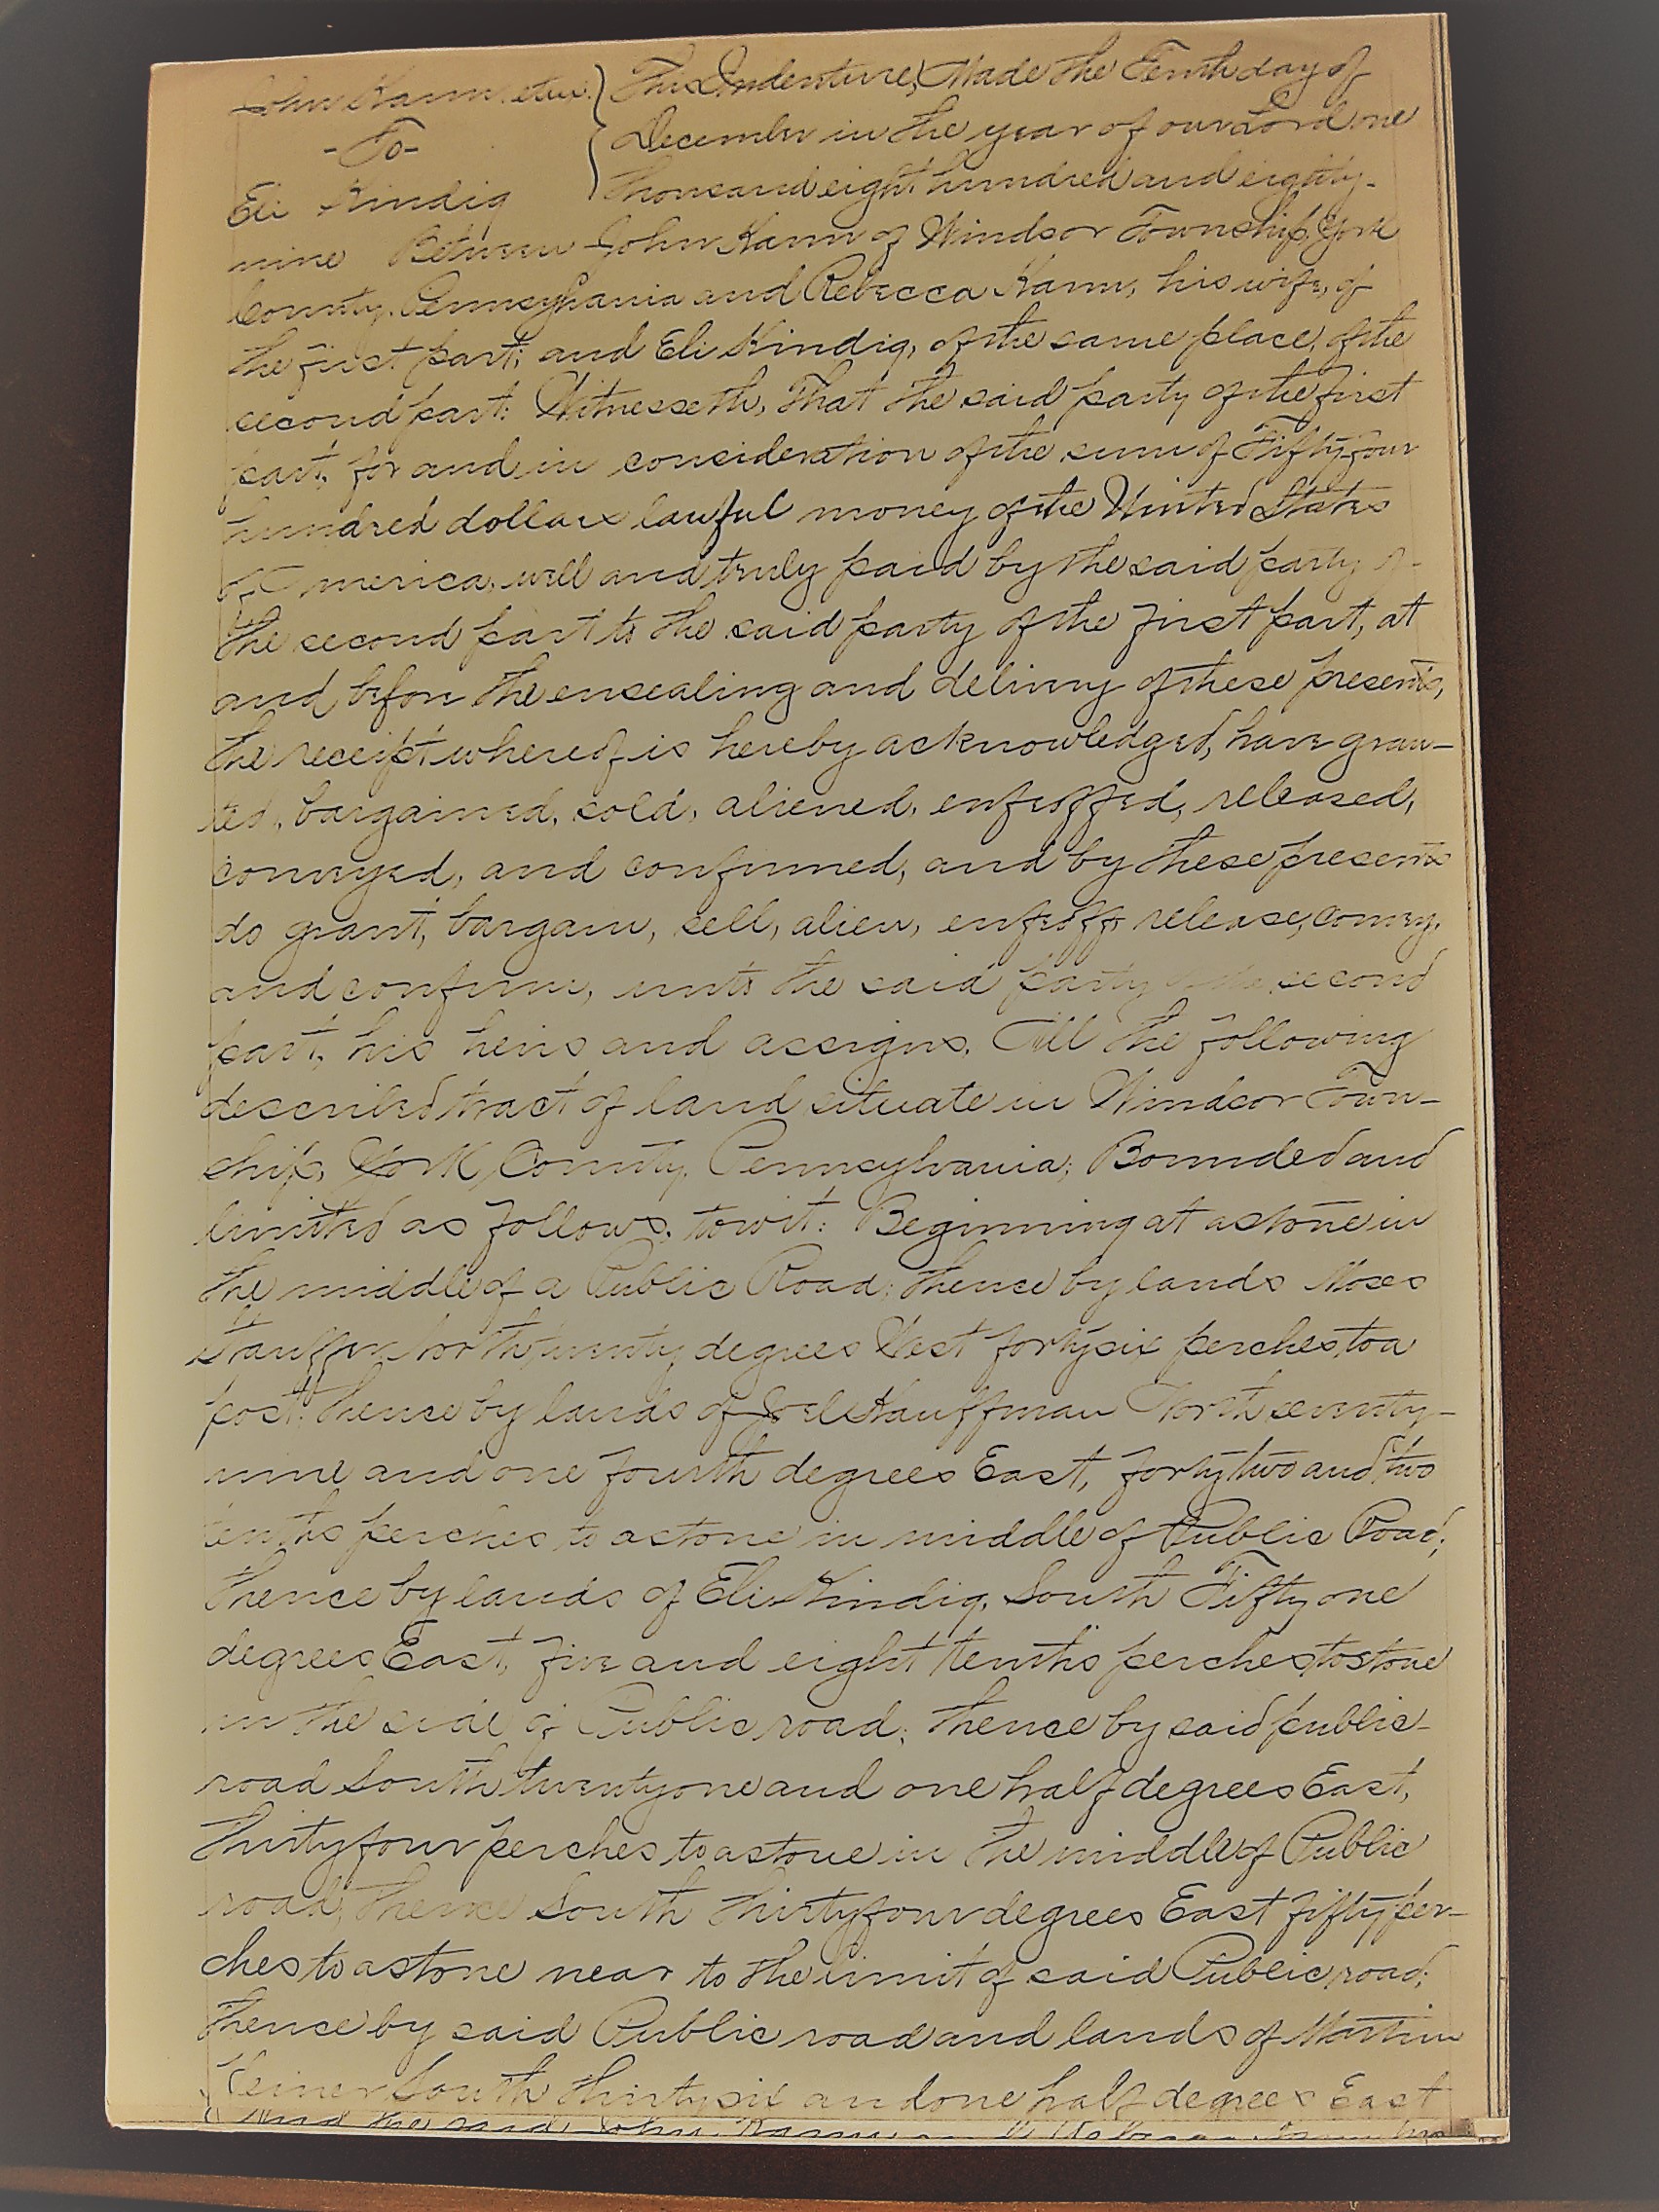 John Kann et ux. } This Indenture, Made the Tenth day of
-To- December in the year of our Lord one
Eli Kindig thousand eight hundred and eighty-
nine Between John Kann of Windsor Township, York
County, Pennsylvania and Rebecca Kann, his wife, of
the first part; and Eli Kindig, of the same place, of the
second part: Witnesseth, That the said party of the first
part, for and in consideration of the sum of Fifty four
hundred dollars lawful money of the United States
of America, well and truly paid by the said party of
the second part to the said party of the first part, at
and before the ensealing and delivery of these presents,
the receipt whereof is hereby acknowledged, have gran-
ted, bargained, sold, aliened, enfeoffed, released,
conveyed, and confirmed, and by these presents
do grant, bargain, sell, alien, enfeoff, release, convey,
and confirm, unto the said party of the second
part, his heirs and assigns, All the following
described tract of land situate in Windsor Town-
ship, York County, Pennsylvania; Bounded and
limited as follows, to wit: Beginning at a stone in
the middle of a Public Road; thence by lands Moses
Stauffer North twenty degrees West forty six perches, to a
post; thence by lands of Joel Kauffman North seventy-
nine and one fourth degrees East, forty two and two
tenths perches to a stone in middle of Public Road;
thence by lands of Eli Kindig, South Fifty one
degrees East, five and eight tenths perches, to stone
in the side of Public road; thence by said public
road South twenty one and one half degrees East,
thirty four perches, to a stone in the middle of Public
road, thence South thirty four degrees East fifty per-
ches to a stone near to the limit of said Public road;
thence by said Public road and lands of Martin
South thirty six and one half degrees East
And the said John Kann